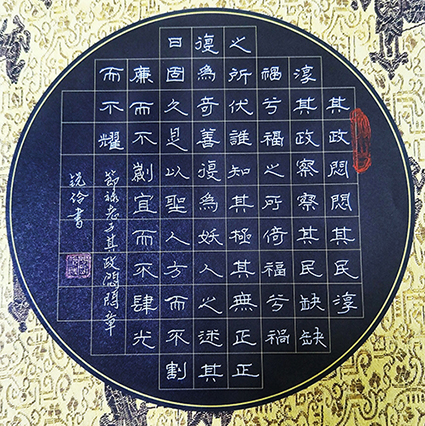 其政悶悶其民淳
淳其政察察其民缺缺
禍兮福之所倚福兮禍
之所伏誰知其極其無正正
復為奇善復為妖人之迷其
日固久是以聖人方而不割
廉而不劌宜而不肆光
而不耀
節錄老子其政悶悶章
伶書